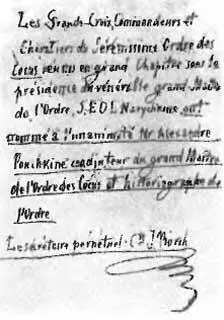 Les Grands-Croix, Commandeurs et
Chevaliers du Sérénissime Ordre des
Cocus réunis en grand Chapitre sous la
présidence du vénérable grand-Maître
de l'Ordre, S.E.D.L. Narychkine, ont
nommé à l'unanimité Mr Alexandre
Pouchkine coadjuteur du grand Maître
de l'Ordre des Cocus et historiographe de
l'Ordre
Le secrétaire perpetuel: C-te J. Borch